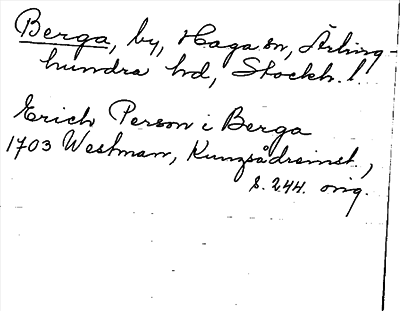 Berga, by, Haga sn, Ärling-
hundra hd, Stockh. l.
Erich Person i Berga
1703 Westman, Kungsådreinst.,
s. 244. orig.